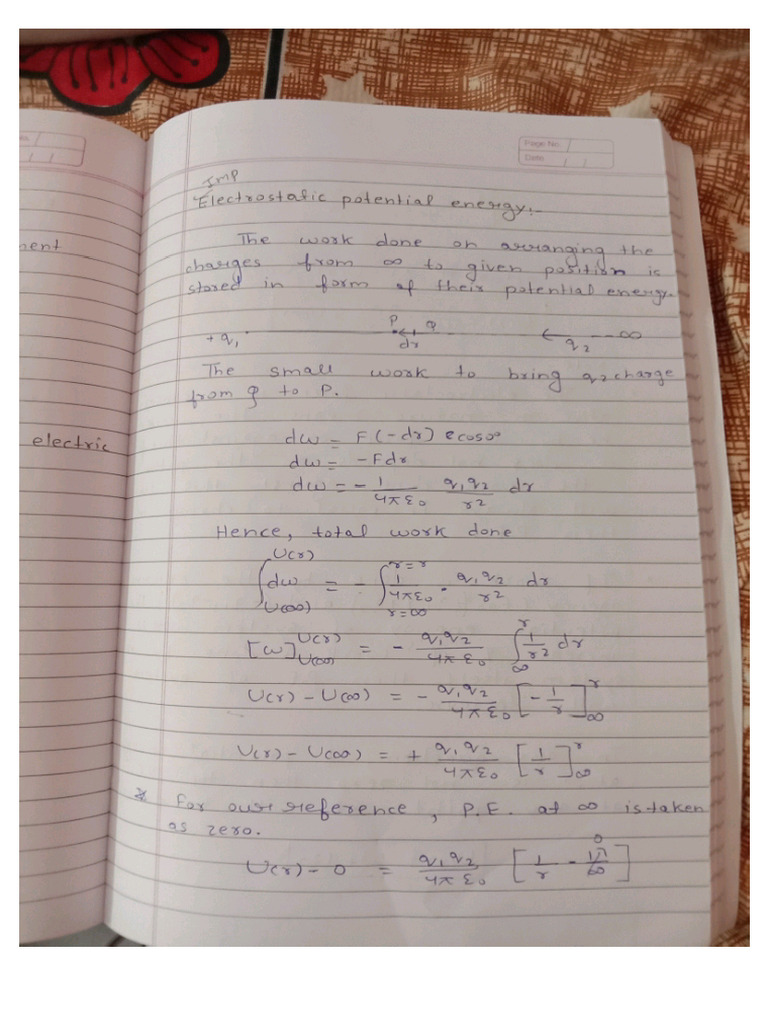 Page No.
Date
Imp
Electrostatic potential energy:-
The work done on arranging the
charges from ∞ to given position is
stored in form of their potential energy.
+q₁ P Q dr q₂ ∞
The small work to bring q₂ charge
from Q to P.
dw = F(-dr) cos0°
dw = -Fdr
dw = - 1/4πε₀ q₁q₂/r² dr
Hence, total work done
∫_{U(∞)}^{U(r)} dw = - ∫_{r=∞}^{r=r} 1/4πε₀ . q₁q₂/r² dr
[w]_{U(∞)}^{U(r)} = - q₁q₂/4πε₀ ∫_∞^r 1/r² dr
U(r) - U(∞) = - q₁q₂/4πε₀ [-1/r]_∞^r
U(r) - U(∞) = + q₁q₂/4πε₀ [1/r]_∞^r
* For our reference, P.E. at ∞ is taken
as zero.
U(r) - 0 = q₁q₂/4πε₀ [1/r - 1/∞ 0]
electric